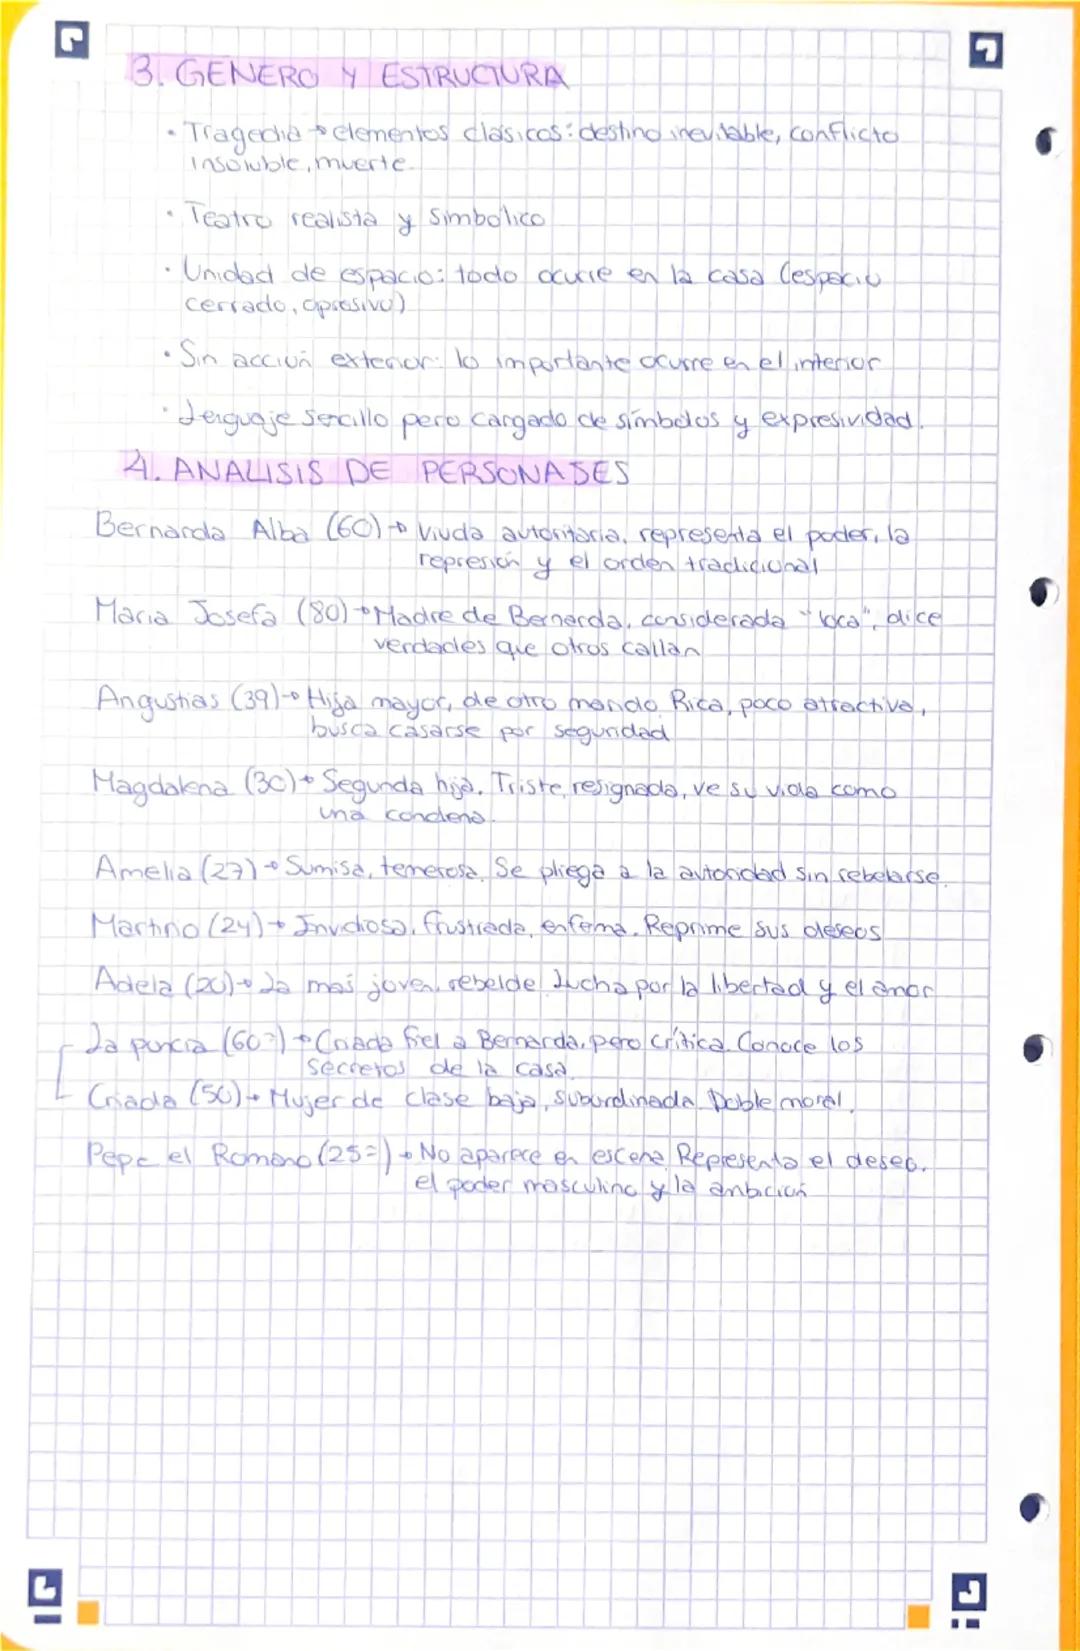 3. GENERO Y ESTRUCTURA
• Tragedia → elementos clásicos: destino inevitable, conflicto
insoluble, muerte.
• Teatro realista y simbólico
• Unidad de espacio: todo ocurre en la casa (espacio
cerrado, opresivo)
• Sin acción exterior: lo importante ocurre en el interior
• Lenguaje sencillo pero cargado de símbolos y expresividad.
4. ANALISIS DE PERSONAJES
Bernarda Alba (60) → Viuda autoritaria, representa el poder, la
represión y el orden tradicional
Maria Josefa (80) → Madre de Bernarda, considerada "loca", dice
verdades que otros callan
Angustias (39) → Hija mayor, de otro marido. Rica, poco attractiva,
busca casarse por seguridad
Magdalena (30) → Segunda hija. Triste, resignada, ve su vida como
una condena.
Amelia (27) → Sumisa, temerosa. Se pliega a la autoridad sin rebelarse.
Martirio (24) → Invidiosa, frustrada, enferma. Reprime sus deseos
Adela (20) → La más joven, rebelde. Lucha por la libertad y el amor
La poncia (60=) → Criada fiel a Bernarda, pero crítica. Conoce los
secretos de la casa.
Criada (50) → Mujer de clase baja, subordinada. Doble moral.
Pepe el Romano (25=) → No aparece en escena. Representa el deseo,
el poder masculino y la ambición